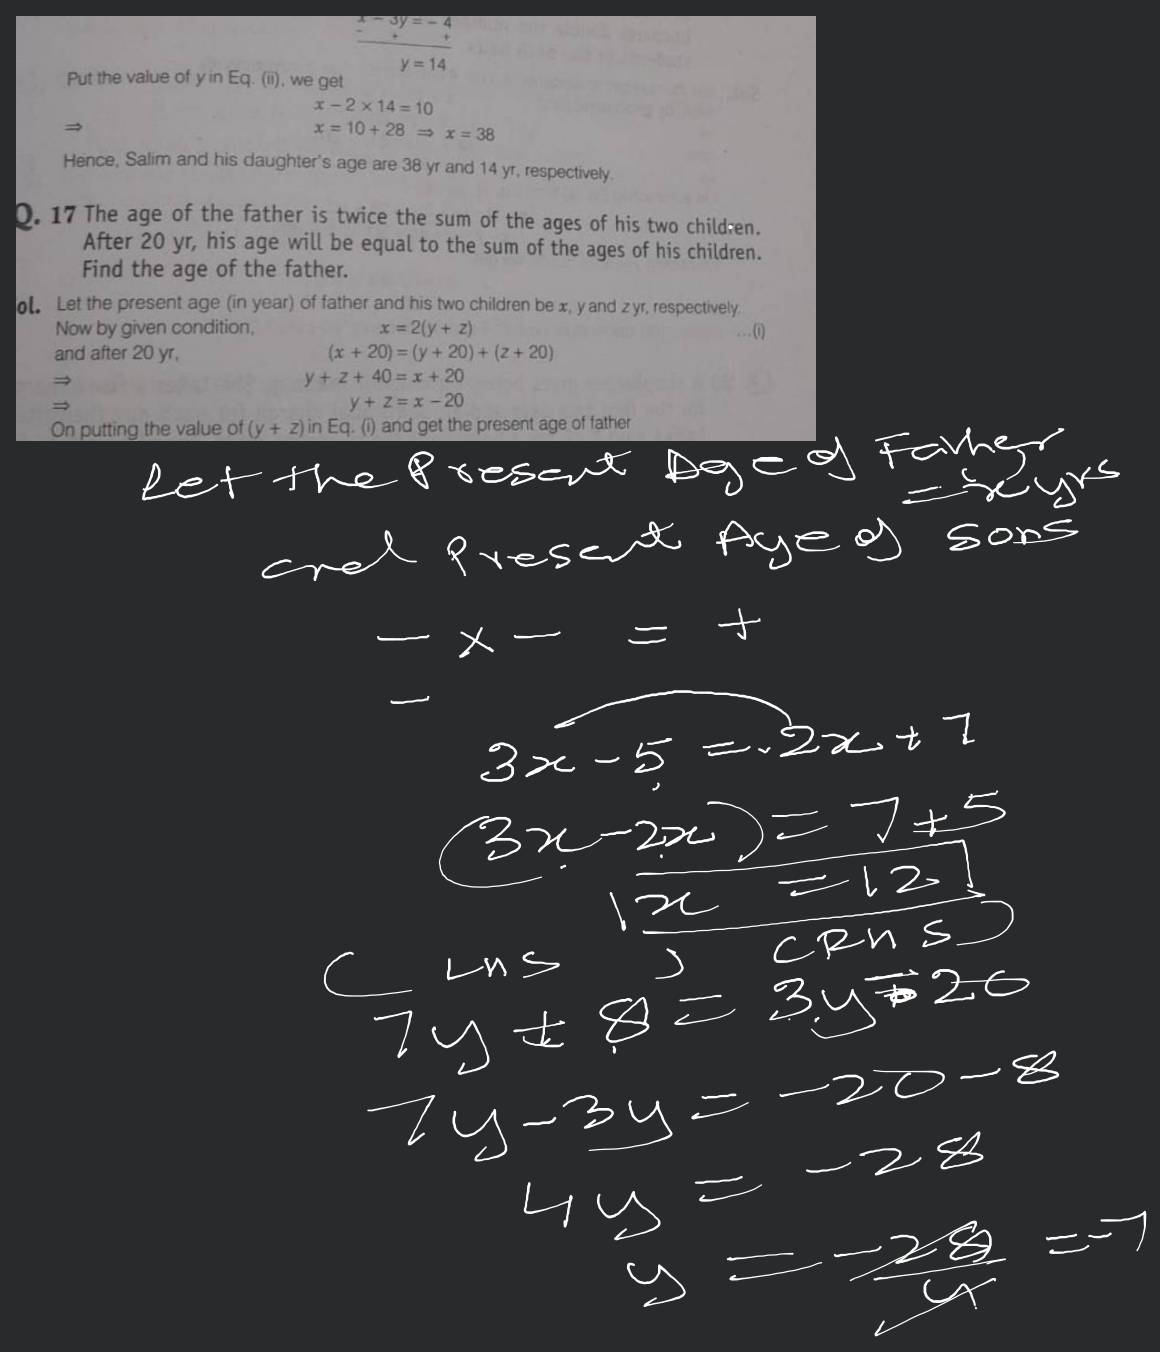 x - 3y = - 4
- + +
y = 14
Put the value of y in Eq. (ii), we get
x - 2 × 14 = 10
⇒ x = 10 + 28 ⇒ x = 38
Hence, Salim and his daughter's age are 38 yr and 14 yr, respectively.
Q. 17 The age of the father is twice the sum of the ages of his two children.
After 20 yr, his age will be equal to the sum of the ages of his children.
Find the age of the father.
ol. Let the present age (in year) of father and his two children be x, y and z yr, respectively.
Now by given condition, x = 2(y + z) ...(i)
and after 20 yr, (x + 20) = (y + 20) + (z + 20)
⇒ y + z + 40 = x + 20
⇒ y + z = x - 20
On putting the value of (y + z) in Eq. (i) and get the present age of father
Let the Present Age of Father
= x yrs
and Present Age of sons
- x - = +
-
3x - 5 = 2x + 7
(3x - 2x) = 7 + 5
1x = 12
( LHS ) (RHS)
7y + 8 = 3y - 20
7y - 3y = -20 - 8
4y = -28
y = -28/4 = -7